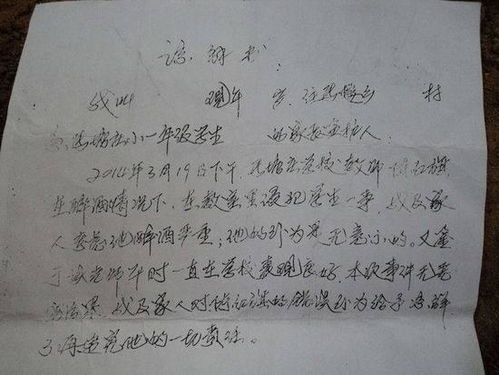 谅解书
我叫 现年 岁,住黑塘乡 村
系黑塘乡小一年级学生 的家长监护人。
2014年3月19日下午,黑塘乡学校教师
在醉酒情况下,在教室里侵犯学生一事,我及家
人考虑他醉酒严重,他的行为是无意识的。又鉴
于该老师平时一直在学校表现良好,本次事件无
后果,我及家人对 的错误行为给予谅解
不再追究他的一切责任。